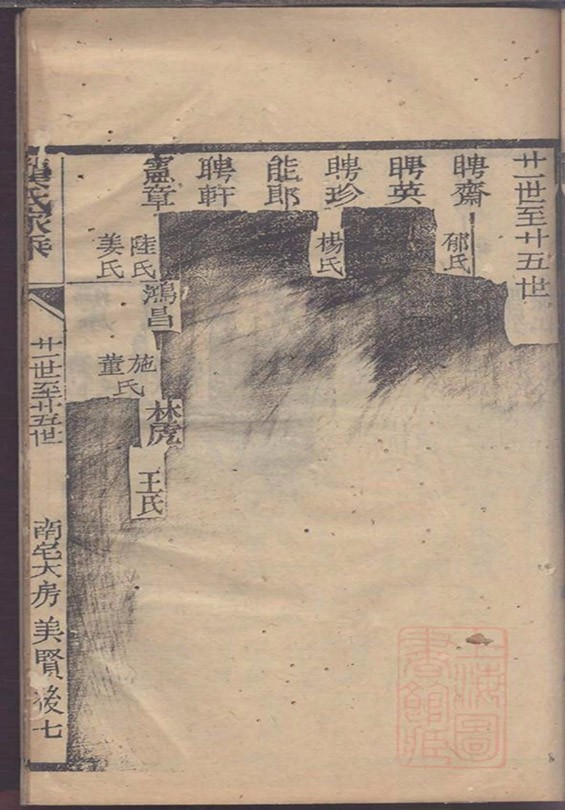 廿一世至廿五世
聘齋
郁氏
聘英
聘珍
楊氏
能郎
聘軒
憲章
陸氏
姜氏
鴻昌
施氏
董氏
林虎
王氏
氏家乘
廿一世至廿五世
南宅大房 美賢後七
上海圖
書館藏